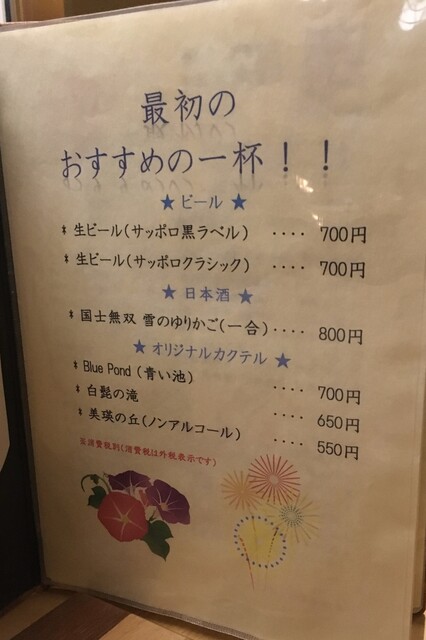 最初の
おすすめの一杯！！
★ ビール ★
* 生ビール（サッポロ黒ラベル） ････ 700円
* 生ビール（サッポロクラシック） ････ 700円
★ 日本酒 ★
* 国士無双 雪のゆりかご（一合）････ 800円
★ オリジナルカクテル ★
* Blue Pond （青い池） ････ 700円
* 白髭の滝 ････ 650円
* 美瑛の丘（ノンアルコール） ････ 550円
※消費税別（消費税は外税表示です）